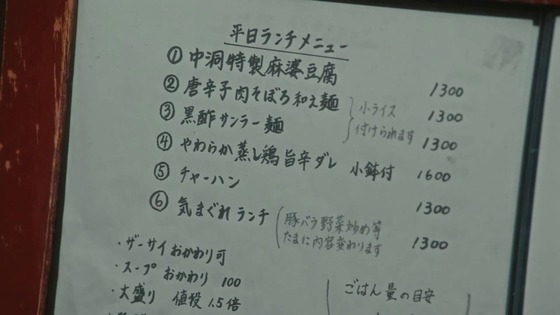 平日ランチメニュー
① 中洞特製麻婆豆腐 1300
② 唐辛子肉そぼろ和え麺 1300
③ 黒酢サンラー麺 1300
小ライス
付けられます
④ やわらか蒸し鶏旨辛ダレ 小鉢付 1600
⑤ チャーハン 1300
⑥ 気まぐれランチ 1300
豚バラ野菜炒め等
たまに内容変わります
・ザーサイおかわり可
・スープおかわり 100
・大盛り 値段1.5倍
ごはん量の目安